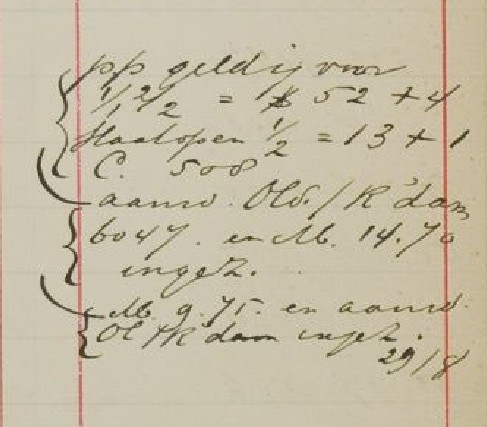 pp geldig voor
1/1 2 1/2 = $ 52 + 4
Staatopen 1/2 = 13 + 1
C. 508
aanw. Old. / R'dam
6047. en M. 14.70
ingez.
M. 9.75. en aanw.
Ol / R'dam ingez.
29/8